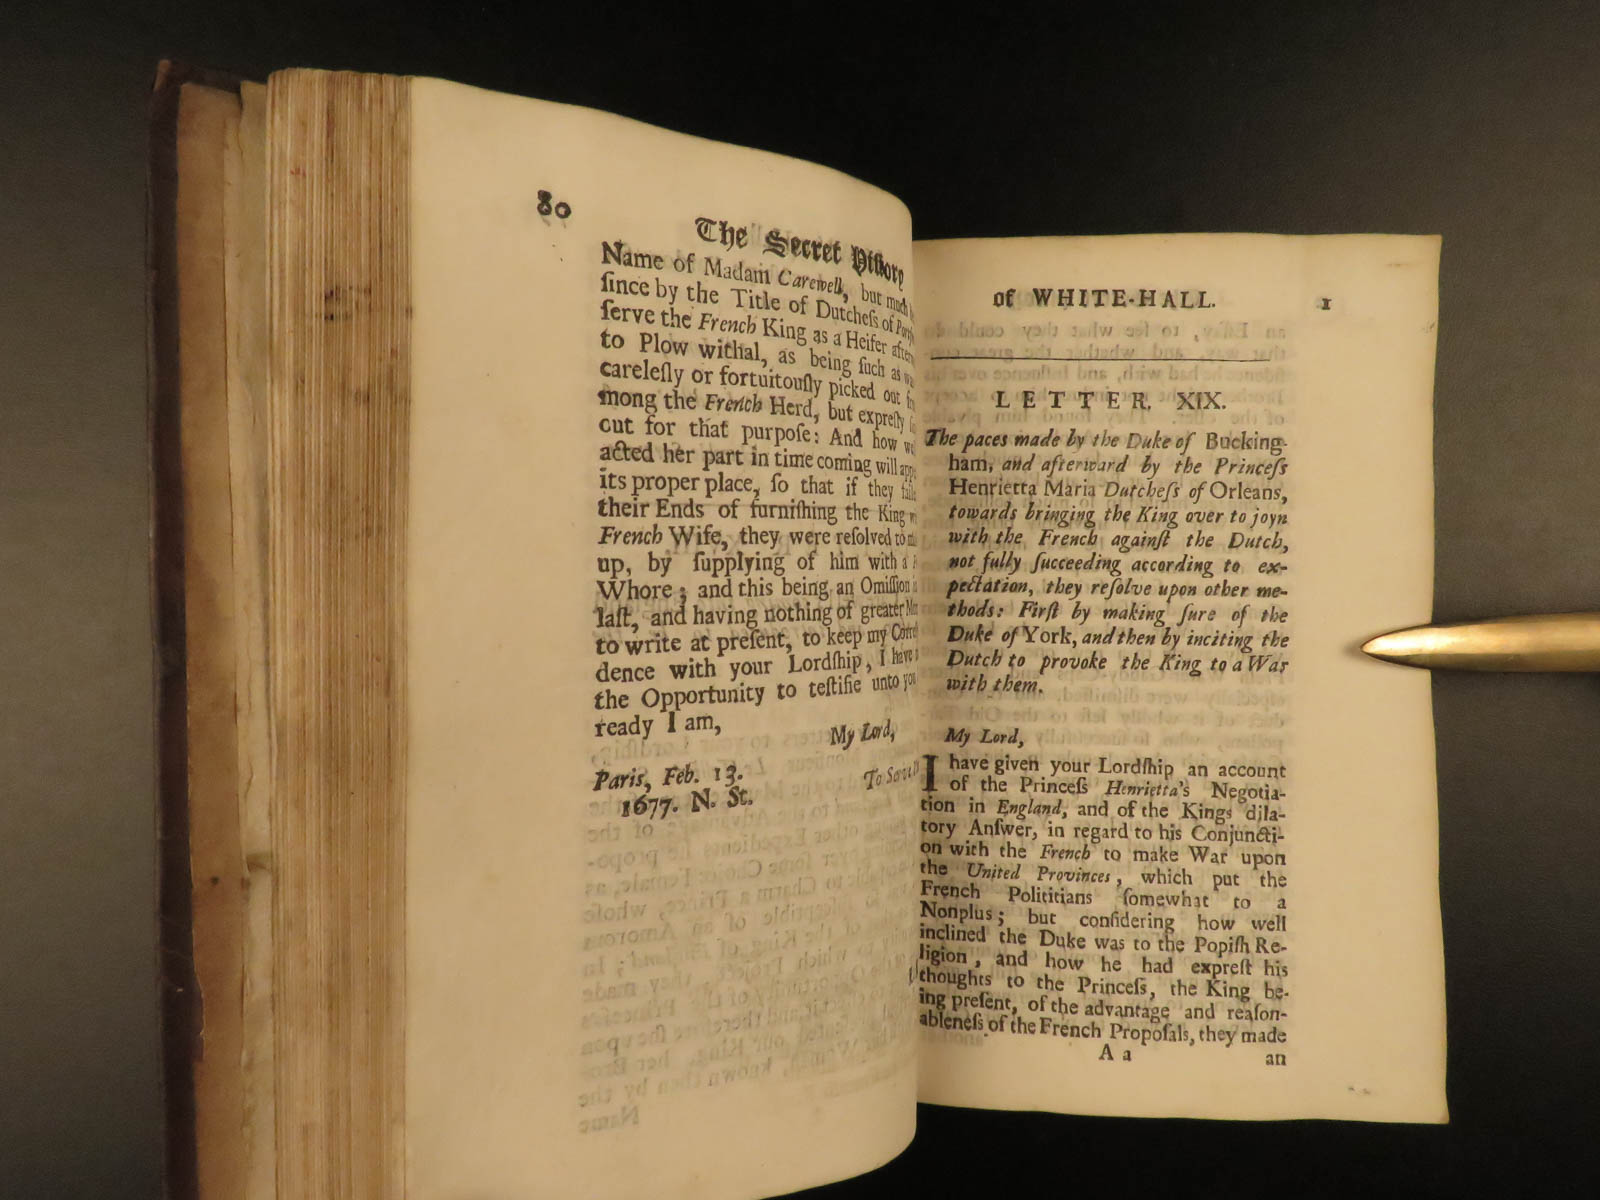 80
The Secret History
Name of Madam Carewell, but much
ſince by the Title of Dutcheſs of
ſerve the French King as a Heifer
to Plow withal, as being ſuch as
careleſly or fortuitouſly picked out
mong the French Herd, but expreſly
out for that purpoſe: And how
acted her part in time coming will
its proper place, ſo that if they
their Ends of furniſhing the King
French Wife, they were reſolved to
up, by ſupplying of him with a
Whore; and this being an Omiſſion
laſt, and having nothing of greater
to write at preſent, to keep my
dence with your Lordſhip, I have
the Opportunity to teſtifie unto
ready I am,
My Lord,
Paris, Feb. 13.
To
1677. N. St.
of WHITE-HALL.
1
LETTER. XIX.
The paces made by the Duke of Bucking-
ham, and afterward by the Princeſs
Henrietta Maria Dutcheſs of Orleans,
towards bringing the King over to joyn
with the French againſt the Dutch,
not fully ſucceeding according to ex-
pectation, they reſolve upon other me-
thods: Firſt by making ſure of the
Duke of York, and then by inciting the
Dutch to provoke the King to a War
with them.
My Lord,
I have given your Lordſhip an account
of the Princeſs Henrietta's Negotia-
tion in England, and of the Kings dila-
tory Anſwer, in regard to his Conjuncti-
on with the French to make War upon
the United Provinces, which put the
French Polititians ſomewhat to a
Nonplus; but conſidering how well
inclined the Duke was to the Popiſh Re-
ligion, and how he had expreſt his
thoughts to the Princeſs, the King be-
ing preſent, of the advantage and reaſon-
ableneſs of the French Propoſals, they made
A a
an